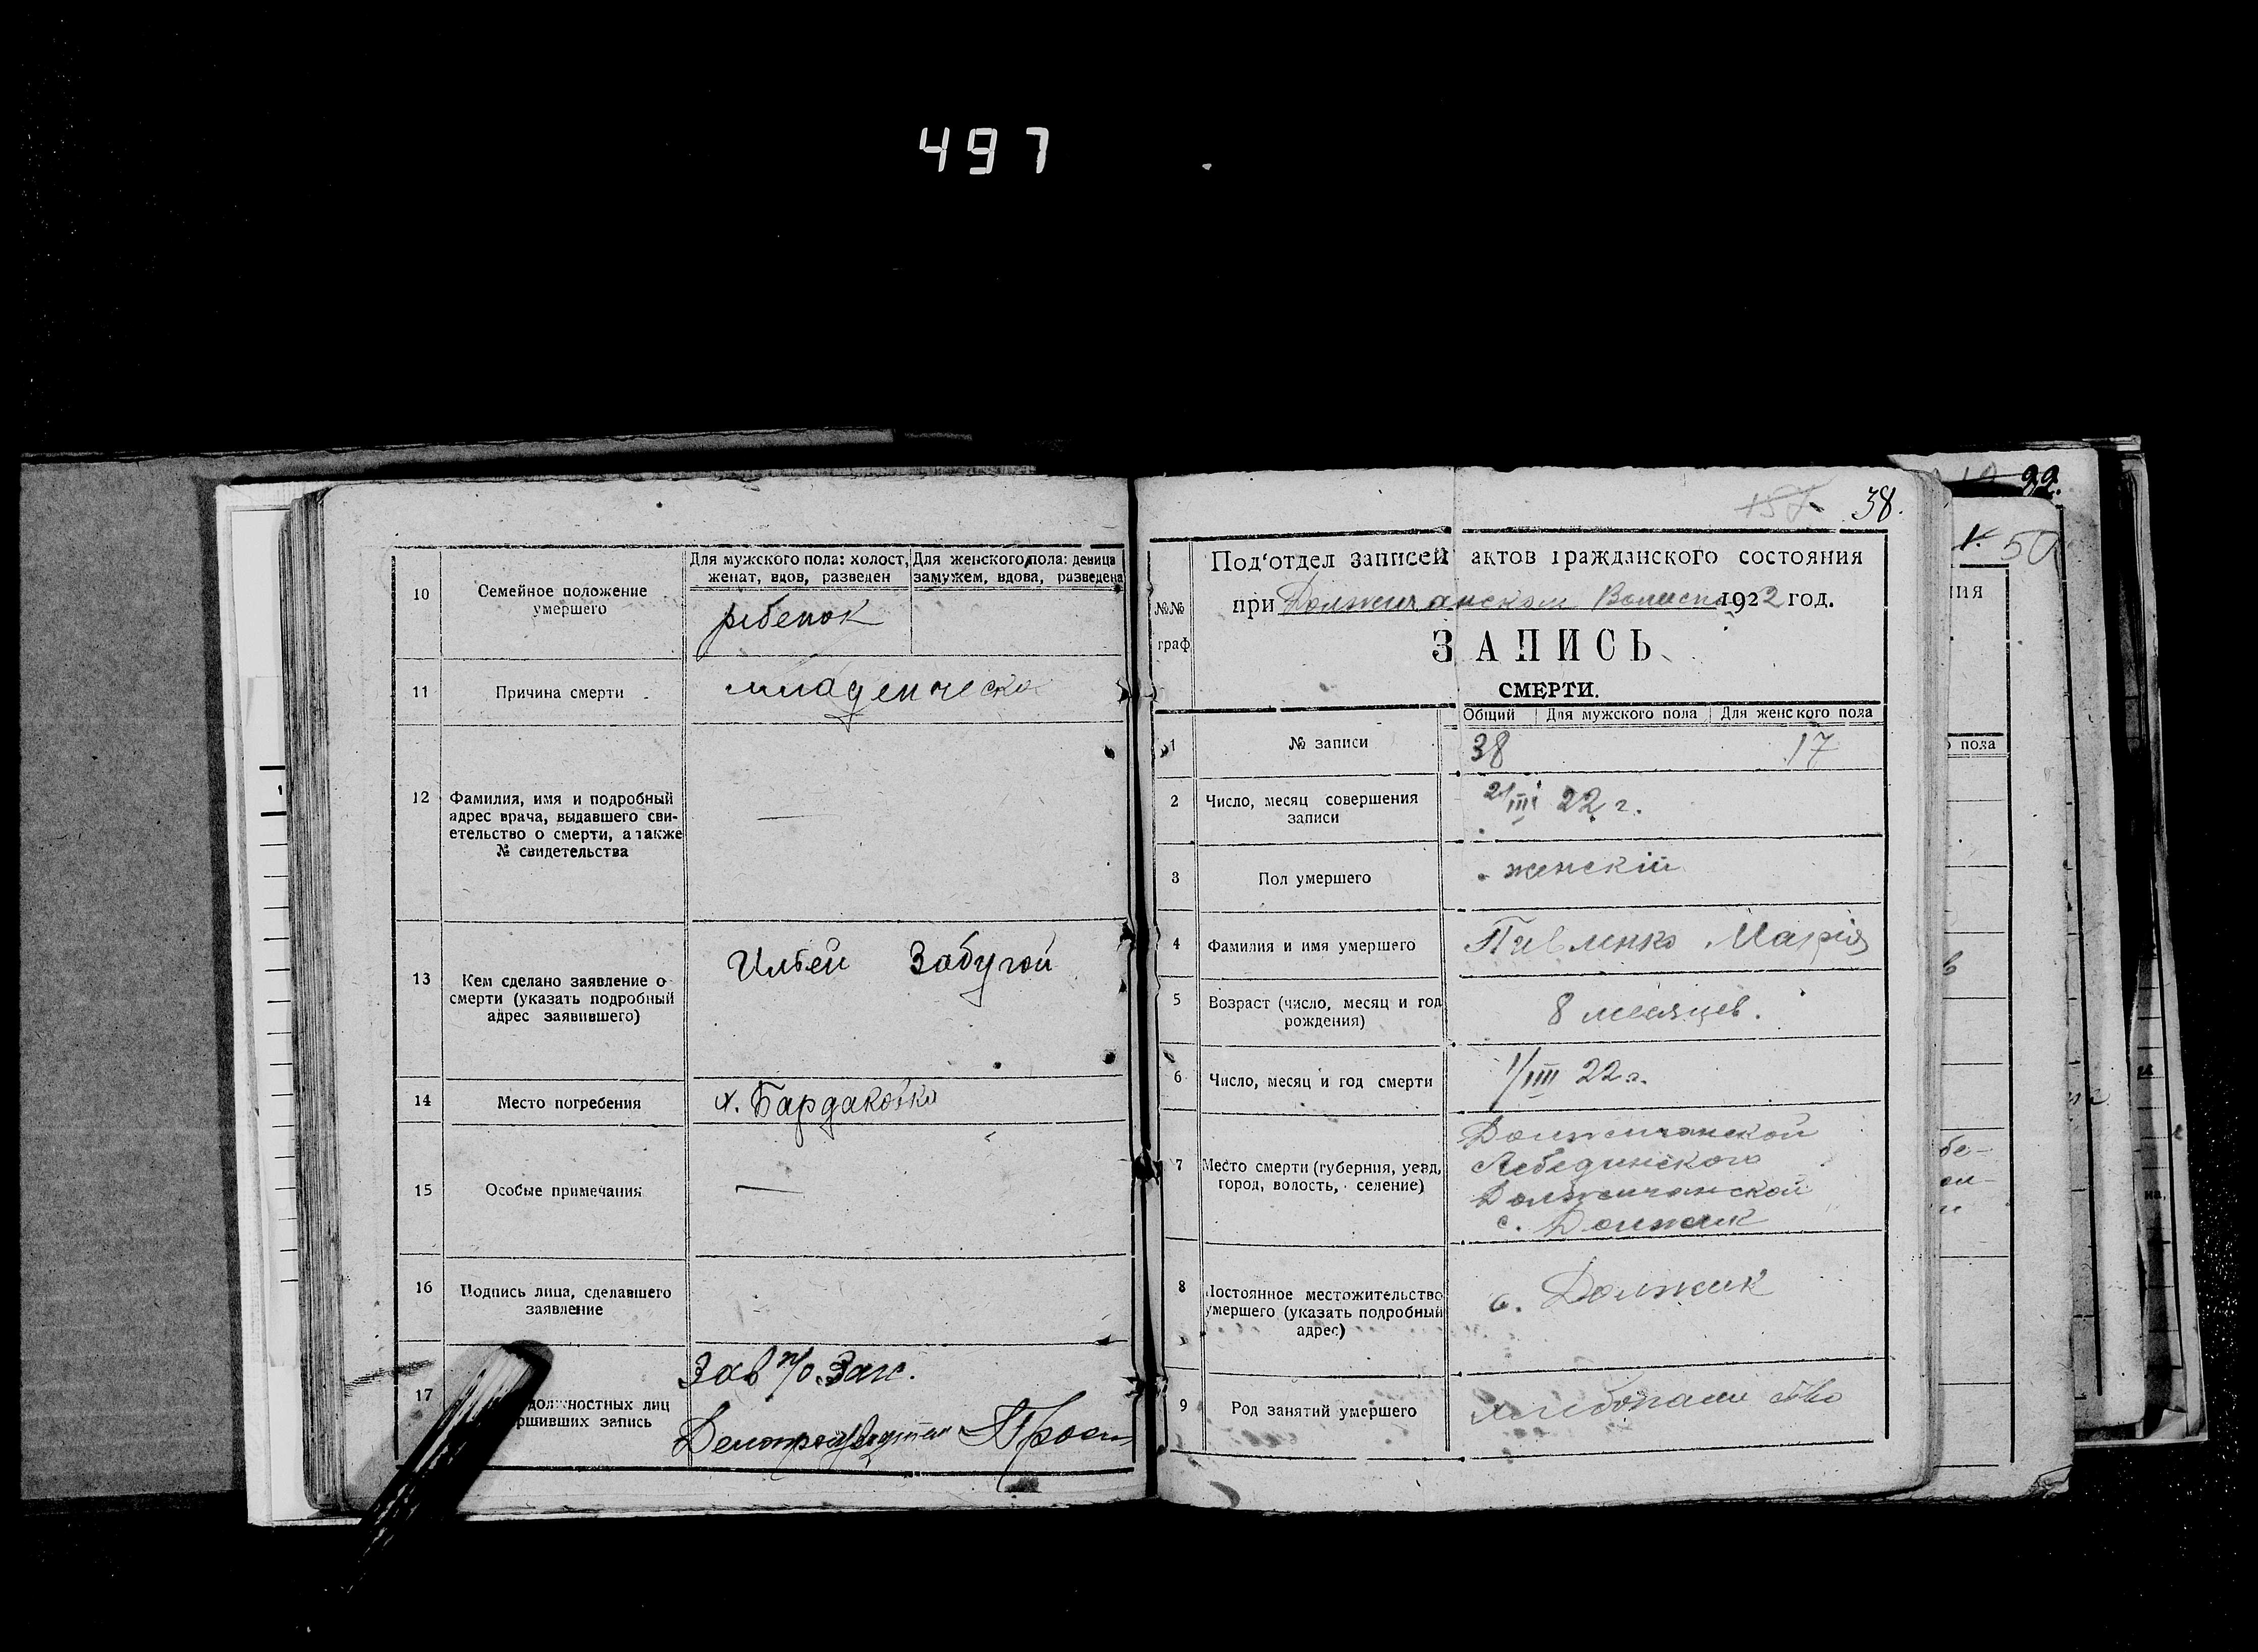 497
10
Семейное положение
умершего
Для мужского пола: холост,
женат, вдов, разведен
Для женского пола: девица
замужем, вдова, разведена
ребенок
11
Причина смерти
младенческа
12
Фамилия, имя и подробный
адрес врача, выдавшего сви-
етельство о смерти, а также
№ свидетельства
—
13
Кем сделано заявление о
смерти (указать подробный
адрес заявившего)
Ильей Забугой
14
Место погребения
х. Бардаковка
15
Особые примечания
—
16
Подпись лица, сделавшего
заявление
17
должностных лиц
ршивших запись
Зав п/о. Заг.
Делопроизводитель
38.
№№
граф
Под'отдел записей актов гражданского состояния
при Должичанском 1922 год.
ЗАПИСЬ
СМЕРТИ.
Общий
Для мужского пола
Для женского пола
1
№ записи
38
17
2
Число, месяц совершения
записи
21/III 22 г.
3
Пол умершего
женскій
4
Фамилия и имя умершего
Павленко Марія
5
Возраст (число, месяц и год
рождения)
8 месяцев.
6
Число, месяц и год смерти
1/III 22 г.
7
Место смерти (губерния, уезд,
город, волость, селение)
Должичанской
Лебединского
Должичанской
с. Должик
8
Постоянное местожительство
умершего (указать подробный
адрес)
с. Должик
9
Род занятий умершего
хлебопашество
22.
50
ния
о пола